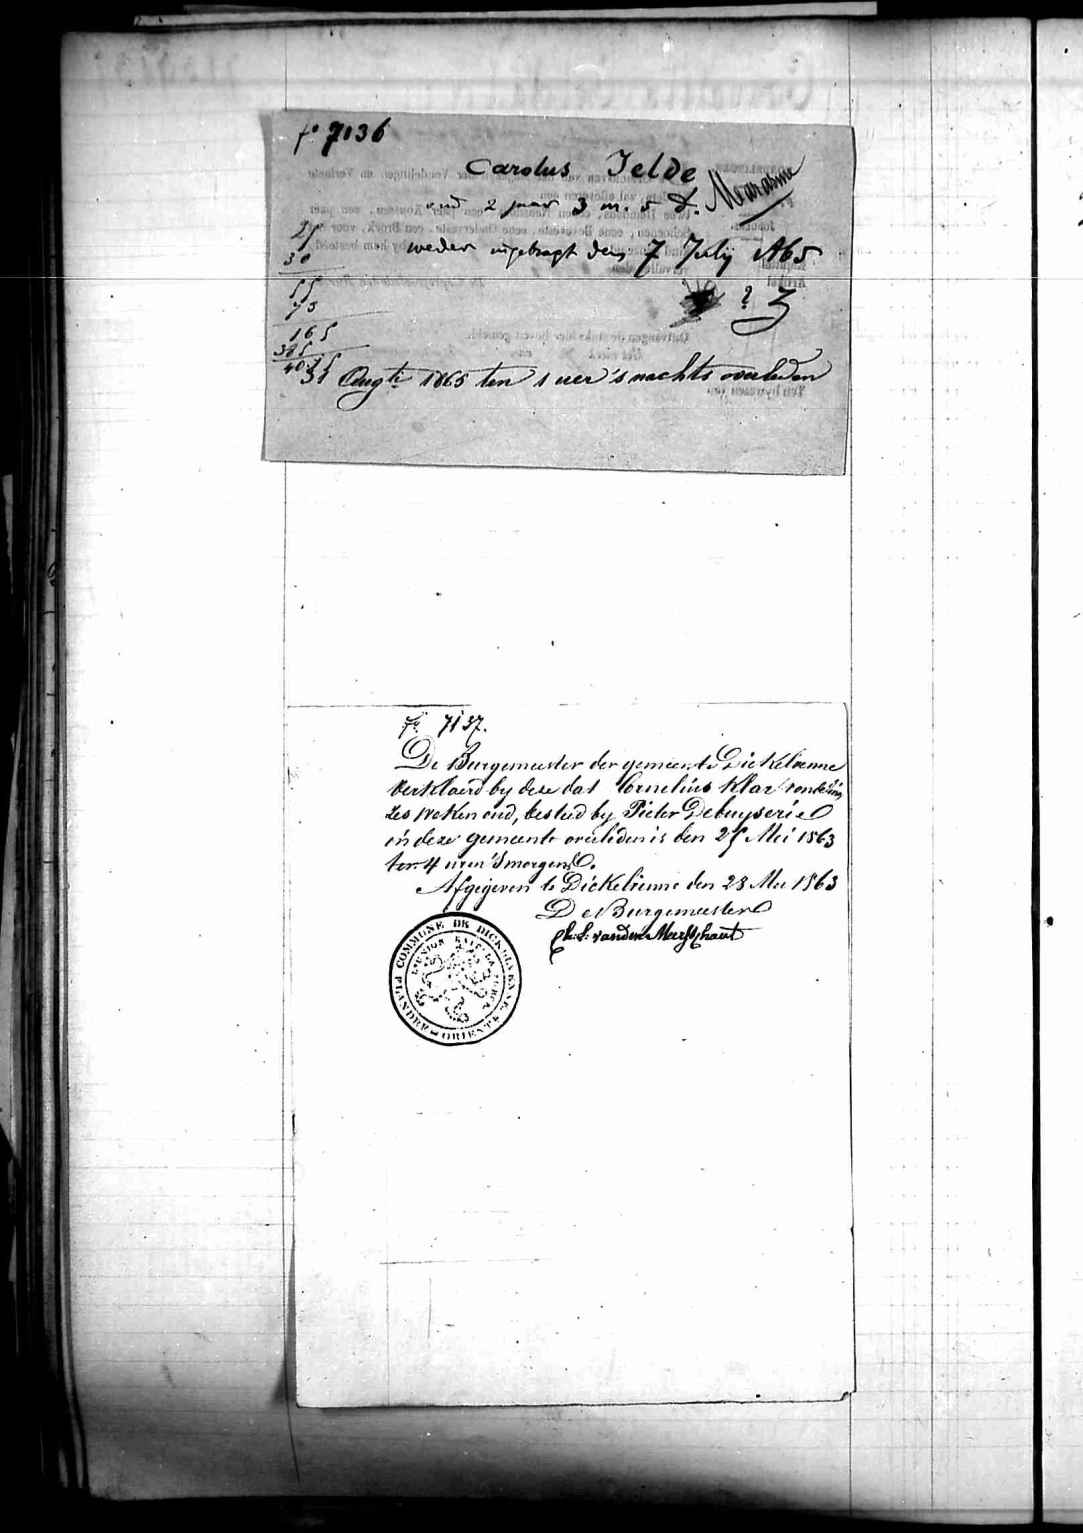 fo 7136
Carolus Jelde
Marasme
oud 2 jaar 3 m. 5 d.
weder ingebragt den 7 July 1865
29
30
55
75
165
? 3
31 Augti 1865 ten 1 uer 's nachts overleden
fo. 7137.
De Burgemeester der gemeente Dickelvenne
verklaerd by deze dat Cornelius Klar vondeling
zes weken oud, besteed by Pieter Debuyserie
in deze gemeente overleden is den 25 Mei 1863
ten 4 uren 'Smorgens.
Afgegeven te Dickelvenne den 28 Mei 1863
De Burgemeester
vander Meerschaut
COMMUNE DE DICKELVENNE
FLANDRE ORIENTE
L'UNION FAIT LA FORCE